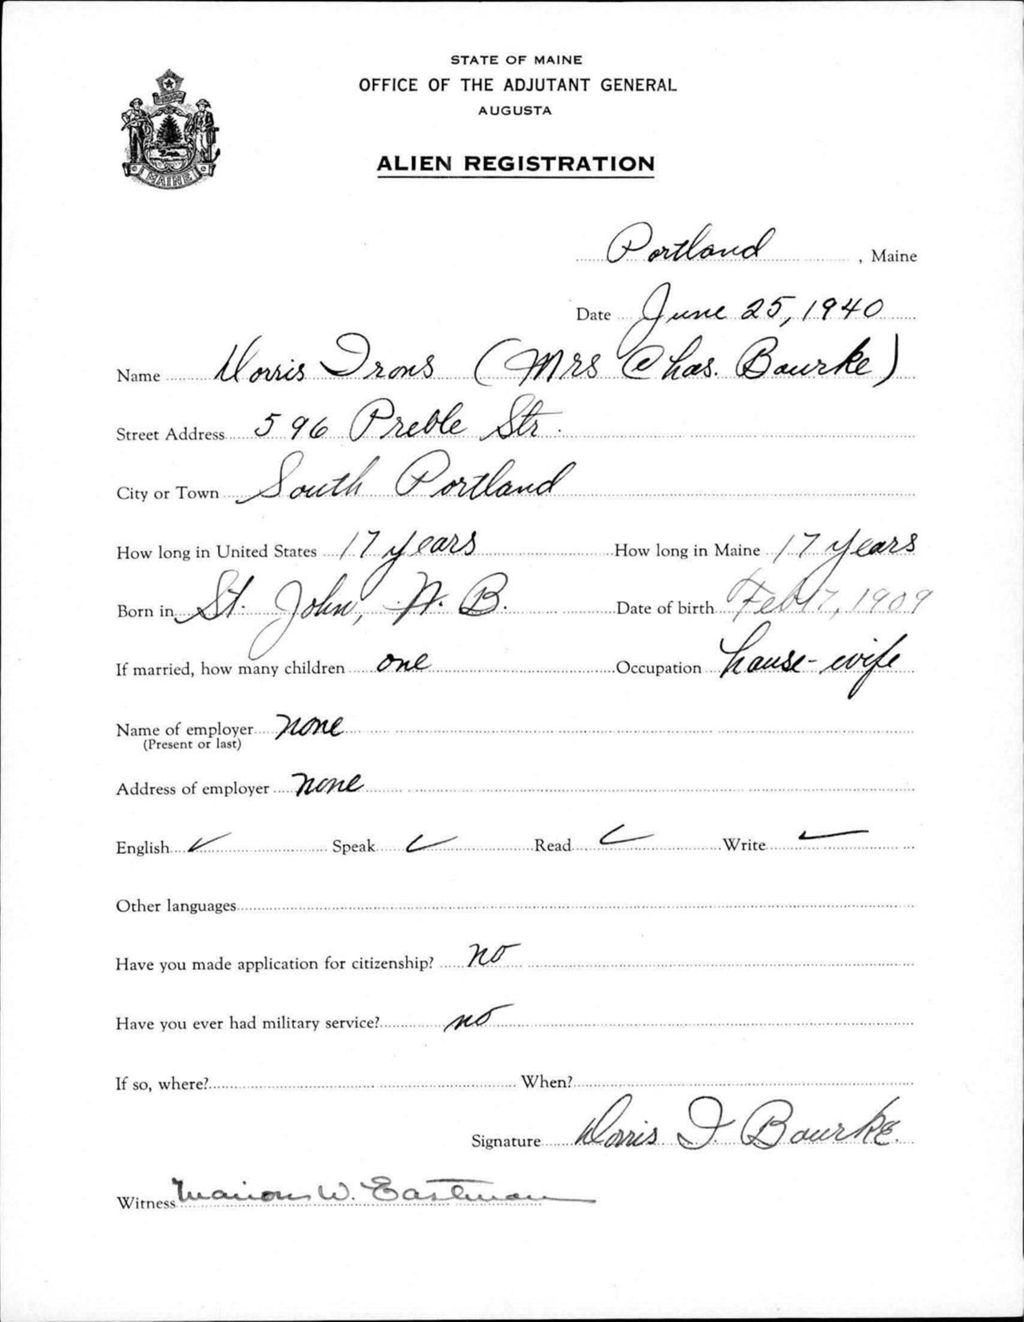 STATE OF MAINE
OFFICE OF THE ADJUTANT GENERAL
AUGUSTA
ALIEN REGISTRATION
MAINE
Portland, Maine
Date June 25, 1940
Name Dorris Irons (Mrs Chas. Bourke)
Street Address 596 Preble Str.
City or Town South Portland
How long in United States 17 years How long in Maine 17 years
Born in St. John, N. B. Date of birth Feb 17, 1909
If married, how many children one Occupation house-wife
Name of employer none
(Present or last)
Address of employer none
English ✓ Speak ✓ Read ✓ Write ✓
Other languages
Have you made application for citizenship? no
Have you ever had military service? no
If so, where? When?
Signature Dorris I. Bourke.
Witness Marion W. Eastman